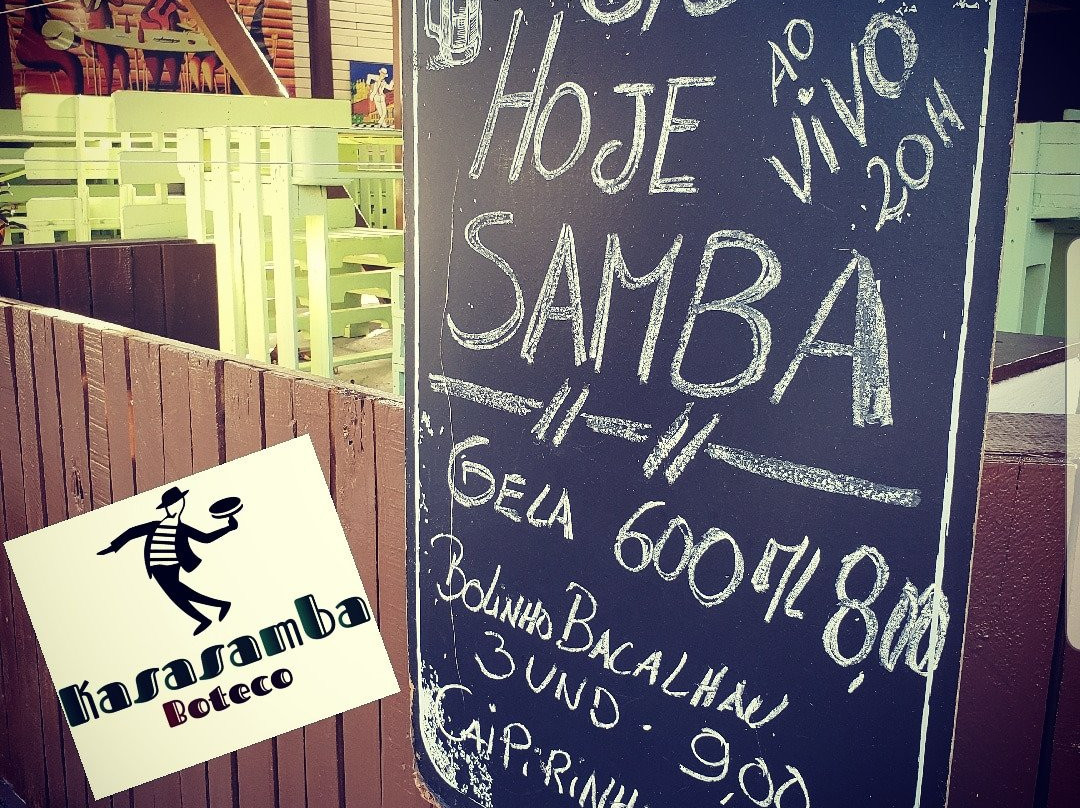 HOJE
AO
ViVO
20H
SAMBA
GELA 600ML 8,00
BOLINHO BACALHAU
3 UND. 9,00
CAIPIRINH
Kasasamba
Boteco